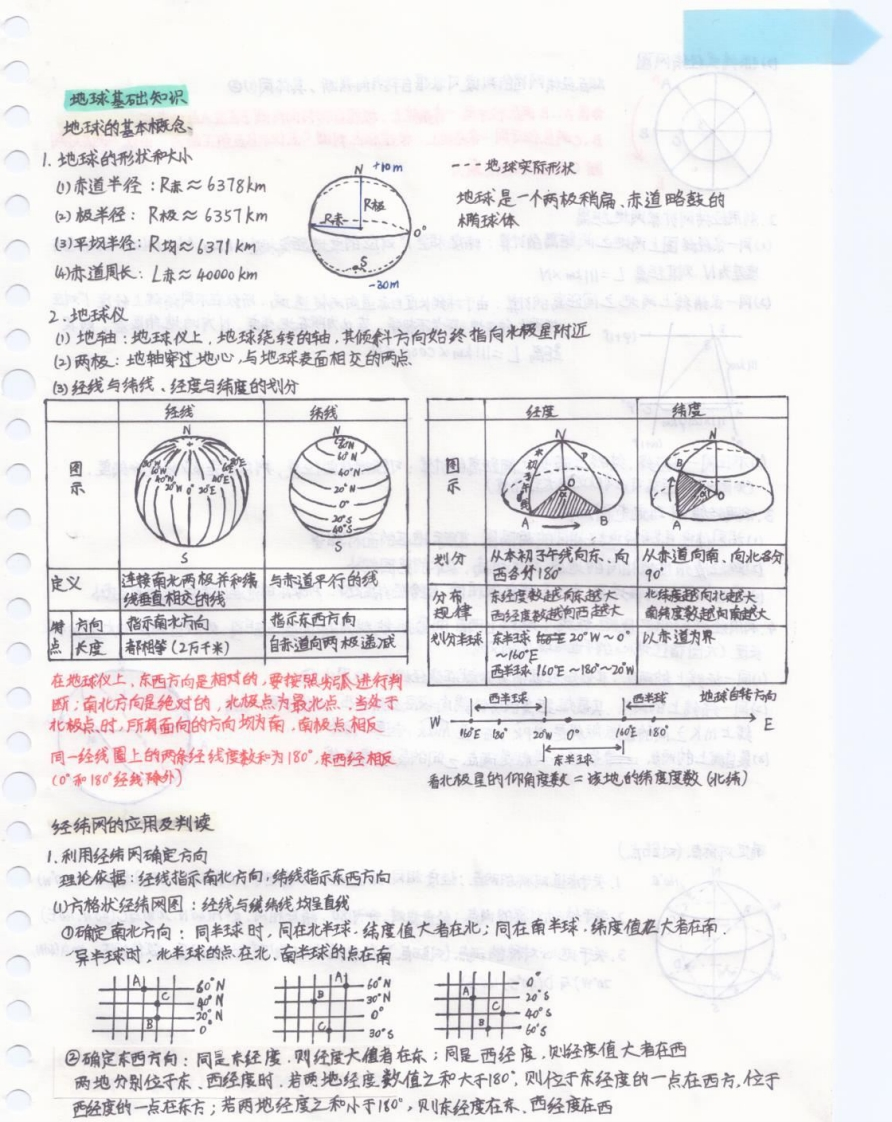 地球基础知识
地球的基本概念:
1. 地球的形状和大小
(1)赤道半径：R赤≈6378km
(2)极半径：R极≈6357km
(3)平均半径：R均≈6371km
(4)赤道周长：L赤≈40000km
N
+10m
R极
R赤
0°
S
-30m
---地球实际形状
地球是一个两极稍扁、赤道略鼓的
椭球体
2. 地球仪
(1) 地轴：地球仪上，地球绕转的轴，其倾斜方向始终指向北极星附近
(2)两极：地轴穿过地心，与地球表面相交的两点
(3)经线与纬线、经度与纬度的划分
经线
纬线
图示
N
20°W 0° 20°E
S
N
60°N
40°N
20°N
0°
20°S
S
定义
连接南北两极并和纬
线垂直相交的线
与赤道平行的线
特点
方向
指示南北方向
指示东西方向
长度
都相等(2万千米)
自赤道向两极递减
经度
纬度
图示
N
P
O
α
A
B
N
B
O
α
A
划分
从本初子午线向东、向
西各分180°
从赤道向南、向北各分
90°
分布规律
东经度数越向东越大
西经度数越向西越大
北纬度越向北越大
南纬度数越向南越大
划分半球
东半球 20°W~0°
~160°E
西半球 160°E~180°~20°W
以赤道为界
在地球仪上，东西方向是相对的，要按照劣弧进行判
断；南北方向是绝对的，北极点为最北点，当处于
北极点时，所有面向的方向均为南，南极点相反
同一经线圈上的两条经线度数和为180°，东西经相反
(0°和180°经线除外)
西半球
西半球
地球自转方向
W
160°E
180°
20°W
0°
160°E
180°
E
东半球
看北极星的仰角度数=该地的纬度度数(北纬)
经纬网的应用及判读
1.利用经纬网确定方向
理论依据：经线指示南北方向，纬线指示东西方向
(1)方格状经纬网图：经线与纬线均呈直线
①确定南北方向：同半球时，同在北半球，纬度值大者在北；同在南半球，纬度值大者在南.
异半球时，北半球的点在北，南半球的点在南
A
C
B
60°N
40°N
20°N
0°
A
B
C
60°N
30°N
0°
30°S
A
C
B
0°
20°S
40°S
60°S
②确定东西方向：同是东经度，则经度大值者在东；同是西经度，则经度值大者在西
两地分别位于东、西经度时，若两地经度数值之和大于180°，则位于东经度的一点在西方，位于
西经度的一点在东方；若两地经度之和小于180°，则东经度在东、西经度在西